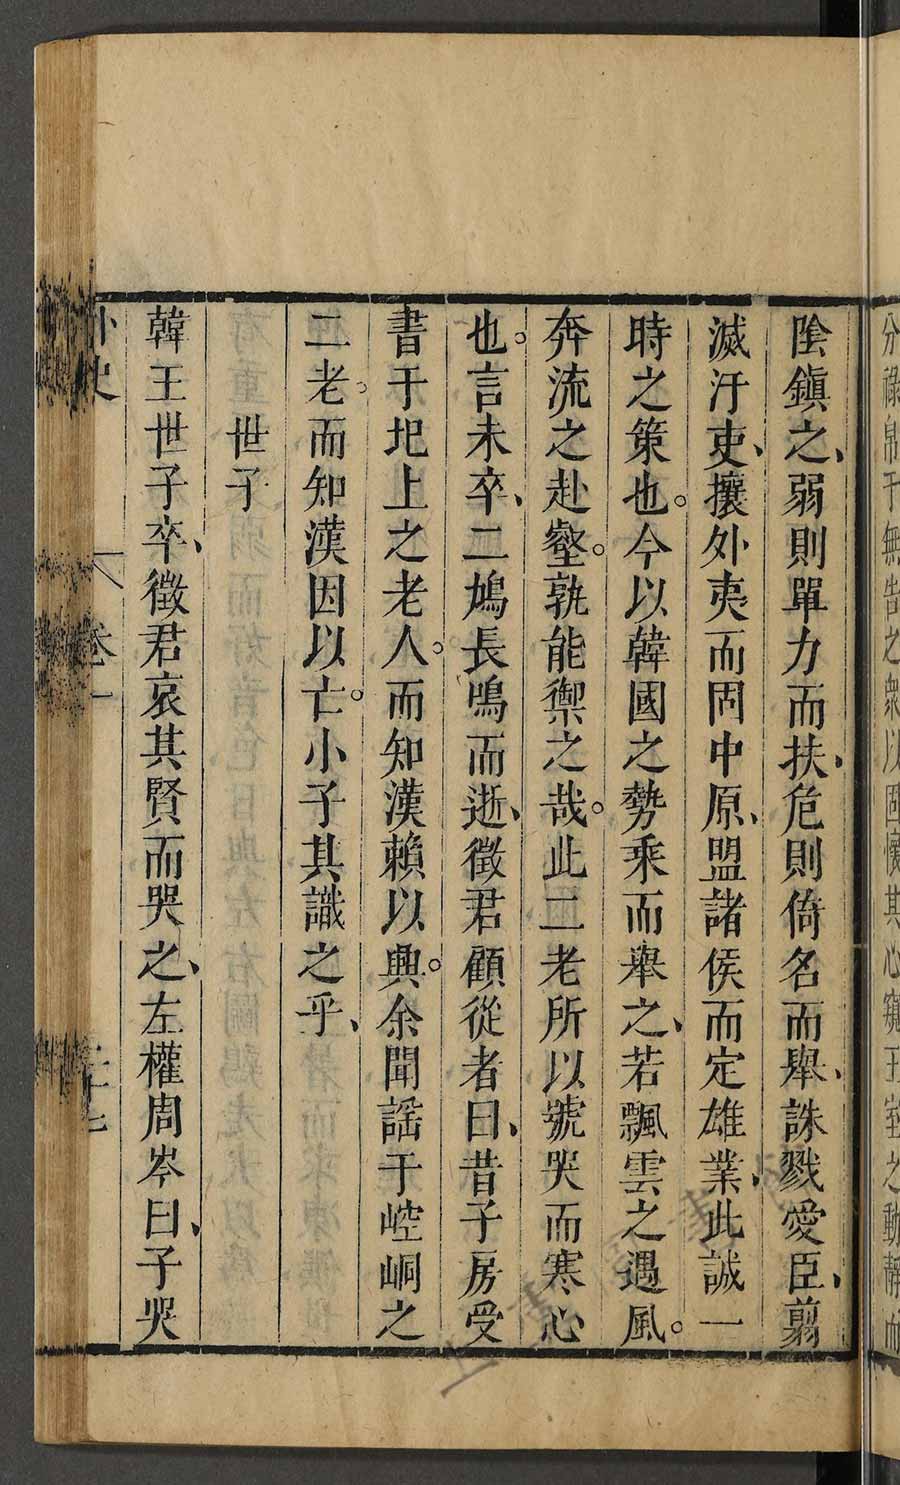 分祿帛于無告之衆以固懷其心窺王室之動靜而
陰鎭之、弱則單力而扶、危則倚名而舉、誅戮愛臣、翦
滅汙吏、攘外夷而固中原、盟諸侯而定雄業、此誠一
時之策也。今以韓國之勢乘而舉之、若飄雲之遇風。
奔流之赴壑。孰能禦之哉。此二老所以號哭而寒心
也。言未卒、二鳩長鳴而逝、徵君顧從者曰、昔子房受
書于圯上之老人。而知漢賴以興。余聞謡于崆峒之
二老。而知漢因以亡。小子其識之乎、
世子
韓王世子卒、徵君哀其賢而哭之、左權周岑曰、子哭
外史 卷一 二十七